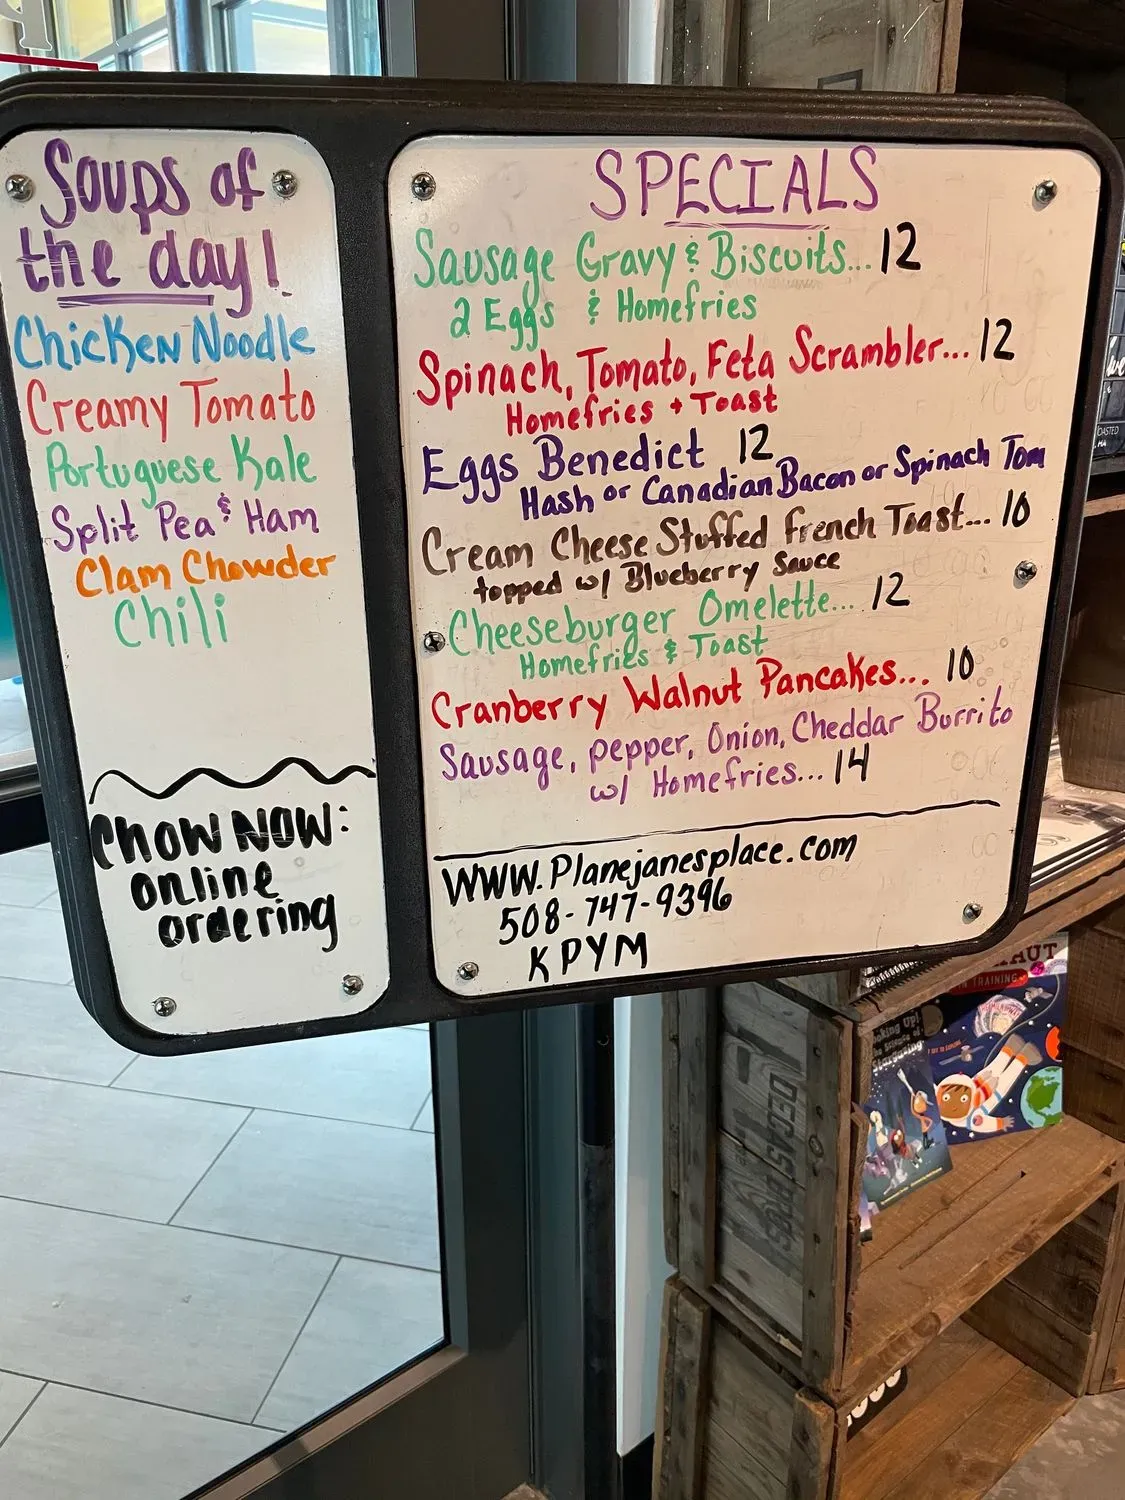 Soups of
the day!
Chicken Noodle
Creamy Tomato
Portuguese Kale
Split Pea & Ham
Clam Chowder
Chili
Chow Now:
online
ordering
SPECIALS
Sausage Gravy & Biscuits... 12
2 Eggs & Homefries
Spinach, Tomato, Feta Scrambler... 12
Homefries + Toast
Eggs Benedict 12
Hash or Canadian Bacon or Spinach Tom
Cream Cheese Stuffed French Toast... 10
topped w/ Blueberry Sauce
Cheeseburger Omelette... 12
Homefries & Toast
Cranberry Walnut Pancakes... 10
Sausage, pepper, Onion, Cheddar Burrito
w/ Homefries... 14
WWW.Planejanesplace.com
508-747-9396
KPYM
IN TRAINING